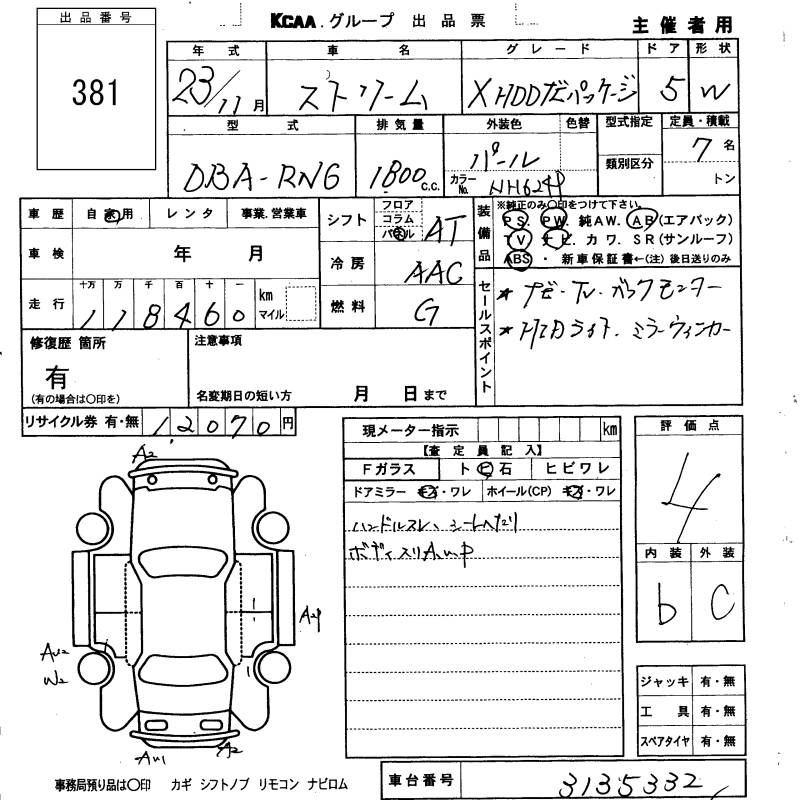 出品番号
381
KCAA.グループ 出品票
主催者用
年式 車名 グレード ドア 形状
23/11月 ストリーム X HDDナビパッケージ 5 W
型式 排気量 外装色 色替 型式指定 定員・積載
DBA-RN6 1800c.c. パール カラーNo. NH624P 類別区分 7名
トン
車歴 自家用 レンタ 事業.営業車
車検 年 月
走行 十万 万 千 百 十 一 km マイル
118460
シフト フロア コラム パネル AT
冷房 AAC
燃料 G
装備品 ※純正のみ〇印をつけて下さい。
PS. PW. 純AW. AB(エアバック)
TV ナビ. カワ. SR(サンルーフ)
ABS ・ 新車保証書←(注)後日送りのみ
セールスポイント
★ナビ・TV・バックモニター
★HIDライト・ミラーウィンカー
修復歴 箇所
有
(有の場合は〇印を)
注意事項
名変期日の短い方 月 日まで
リサイクル券 有・無 12070円
現メーター指示 km
【査定員記入】
Fガラス ト ビ 石 ヒビワレ
ドアミラー キズ・ワレ ホイール(CP) キズ・ワレ
ハンドルスレ、シートヘたり
ボディスリAu、P
評価点
4
内装 外装
b C
A2
AP
AU2
W2
AU1
A2
ジャッキ 有・無
工具 有・無
スペアタイヤ 有・無
事務局預り品は〇印 カギ シフトノブ リモコン ナビロム
車台番号 3135332